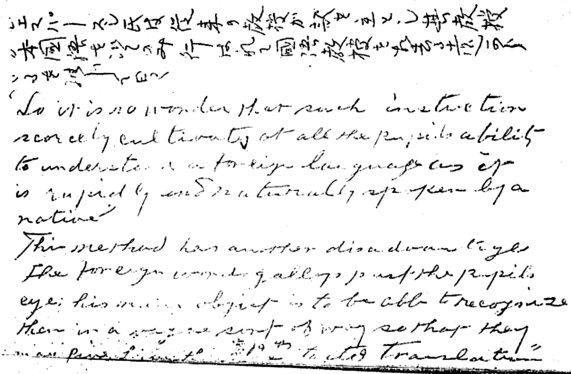 エスパーセン氏は従来の教授が訳を主とし其教授
が本國語を以てのみ行はれて國語教授を
So it is no wonder that such instruction
scarcely cultivates at all the pupils ability
to understand a foreign language as it
is rapidly and naturally spoken by a
native
This method has another disadvantage
The foreign word gallops past the pupils
eye; his main object is to be able to recognize
them in a vague sort of way so that they
may translation